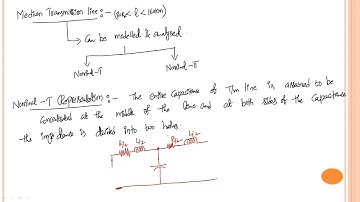 Medium Transmission line :-
Can be modelled & analysed
Nominal-T
Nominal-π
Nominal-T Representation :- The entire Capacitance of T/m line is assumed to be
Concentrated at the middle of the line and at both sides of the Capacitance
the impedance is divided into two halves.
R/2 L/2 R/2 L/2